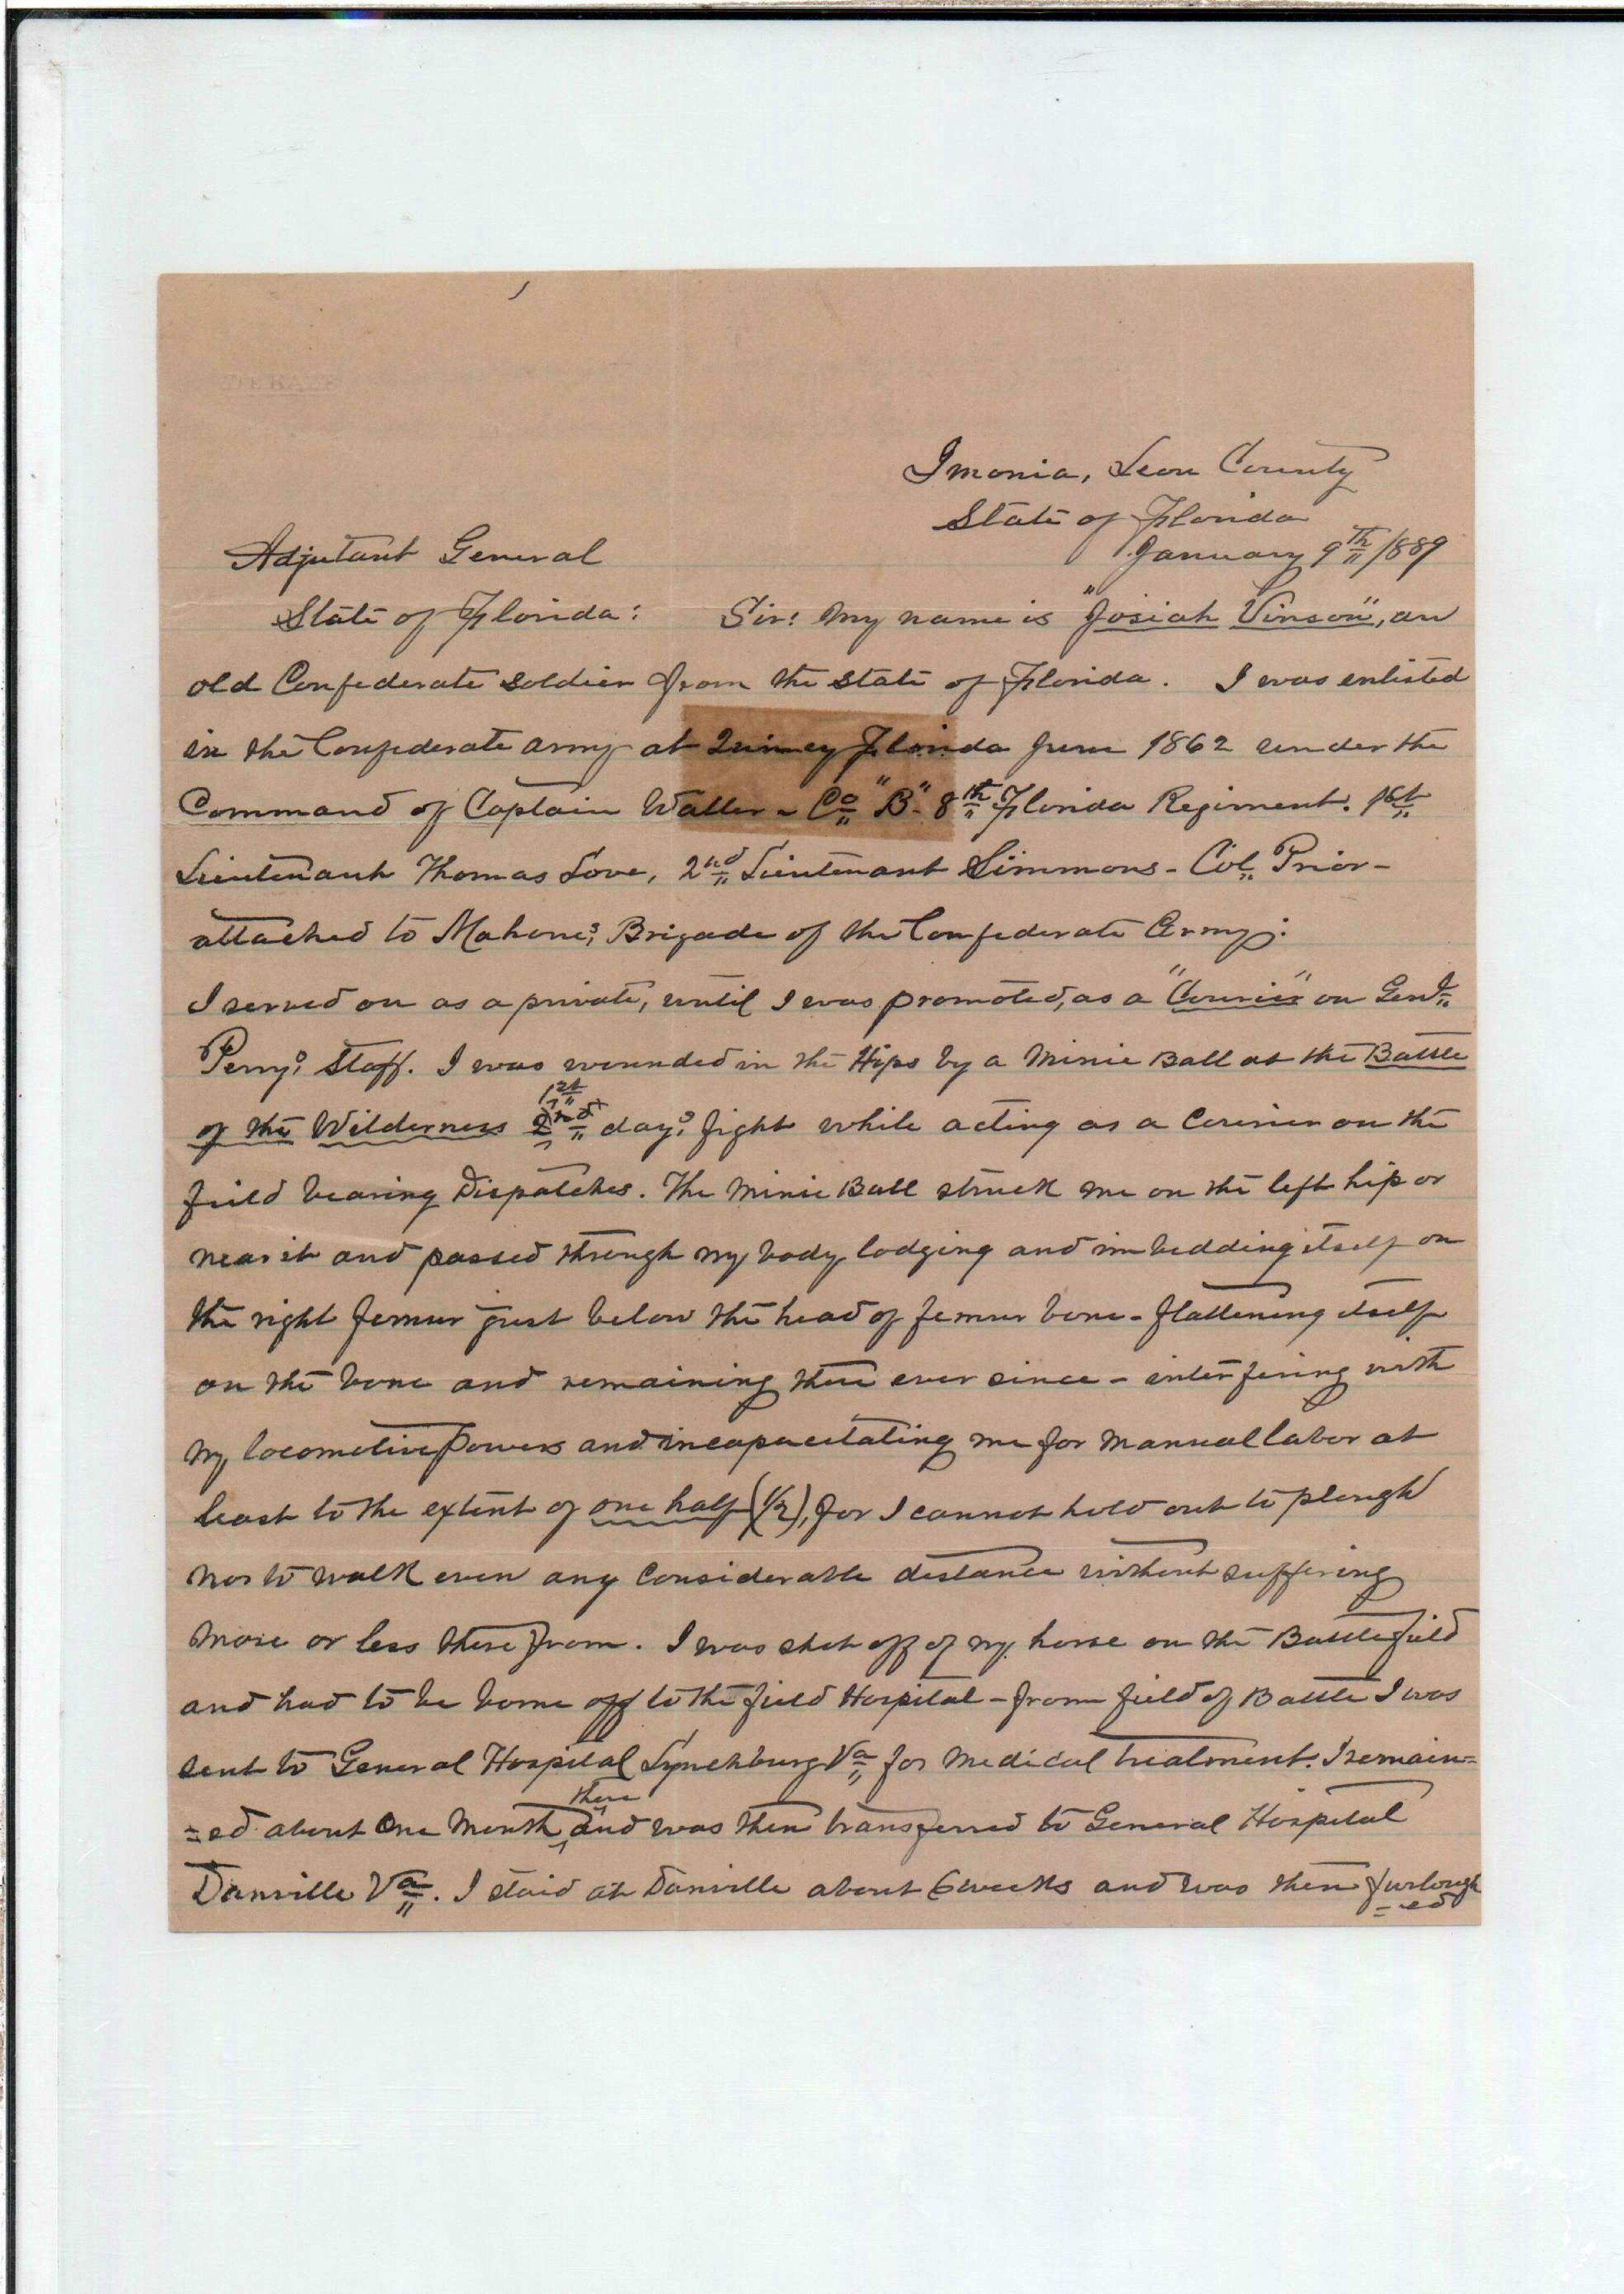 Imonia, Leon County
State of Florida
January 9th 1889
Adjutant General
State of Florida: Sir: My name is "Josiah Vinson", an
old Confederate soldier from the state of Florida. I was enlisted
in the Confederate army at Quincy Florida June 1862 under the
Command of Captain Waller - Co "B" - 8th Florida Regiment. 1st
Lieutenant Thomas Love, 2nd Lieutenant Simmons - Col. Prior -
attached to Mahone's Brigade of the Confederate Army.
I served on as a private, until I was promoted, as a "Courier" on Genl
Perry's Staff. I was wounded in the Hips by a Minie Ball at the Battle
1st
of the Wilderness 2nd day's fight while acting as a Courier on the
field bearing Dispatches. The Minie Ball struck me on the left hip or
near it and passed through my body lodging and imbedding itself on
the right femur just below the head of femur bone - flattening itself
on the bone and remaining there ever since - interfering with
my locomotive Powers and incapacitating me for manual labor at
least to the extent of one half (1/2), for I cannot hold out to plough
nor to walk even any considerable distance without suffering
more or less therefrom. I was shot off of my horse on the Battlefield
and had to be borne off to the field Hospital - from field of Battle I was
sent to General Hospital Lynchburg Va for medical treatment. I remain=
there
=ed about One Month and was then transferred to General Hospital
Danville Va. I staid at Danville about 6 weeks and was then furlough
=ed